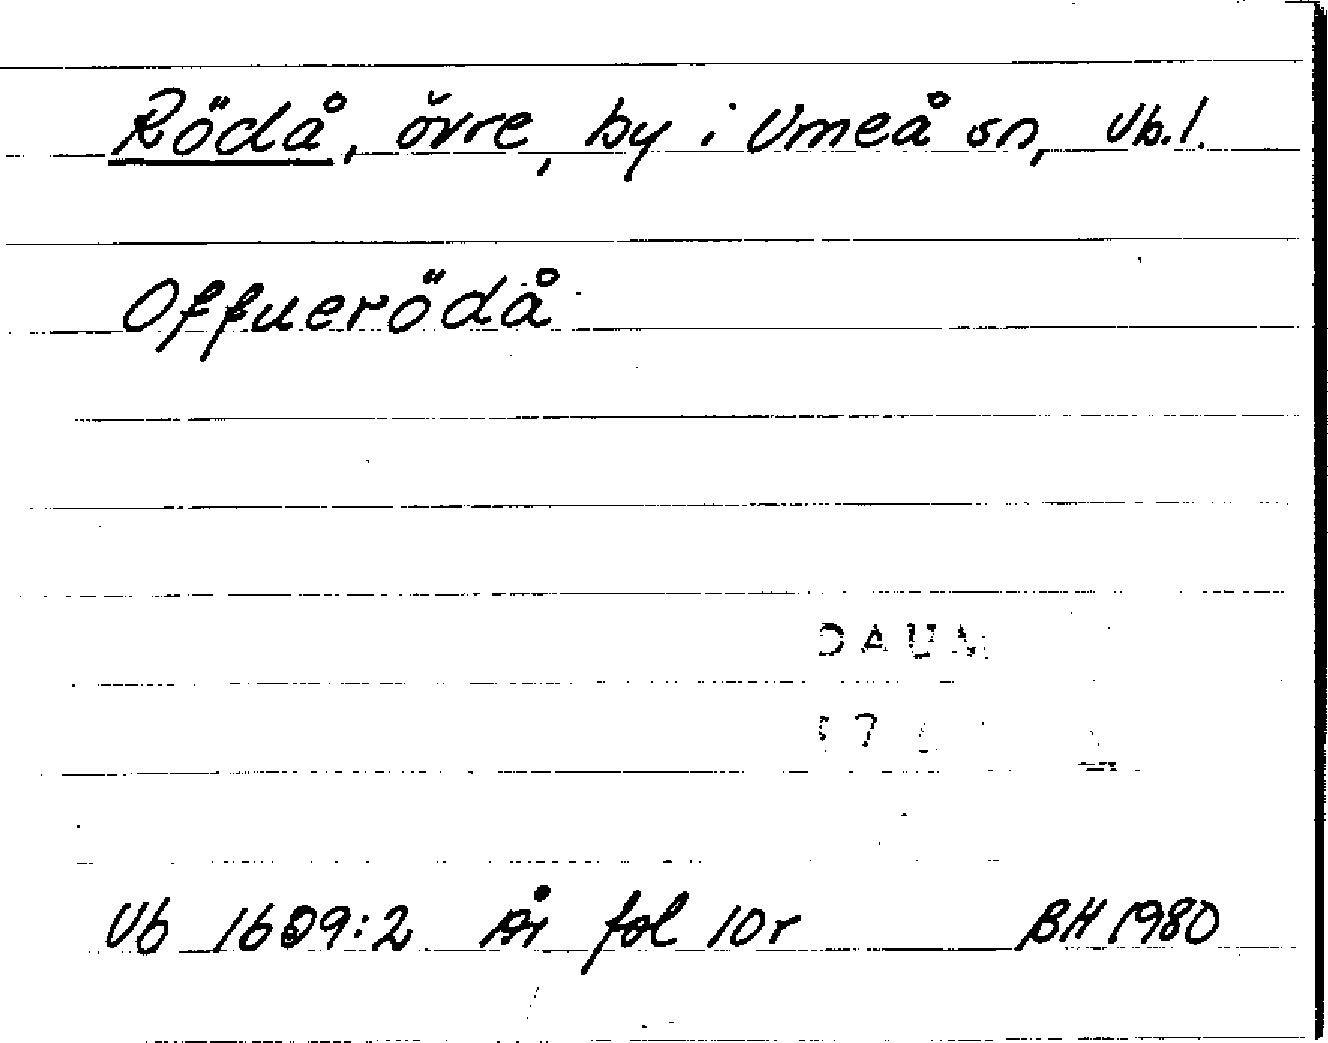 Rödå, övre, by i Umeå sn, Vb.l.
Offuerödå
DAUM
Vb 1609:2 RA fol 10r BH 1980